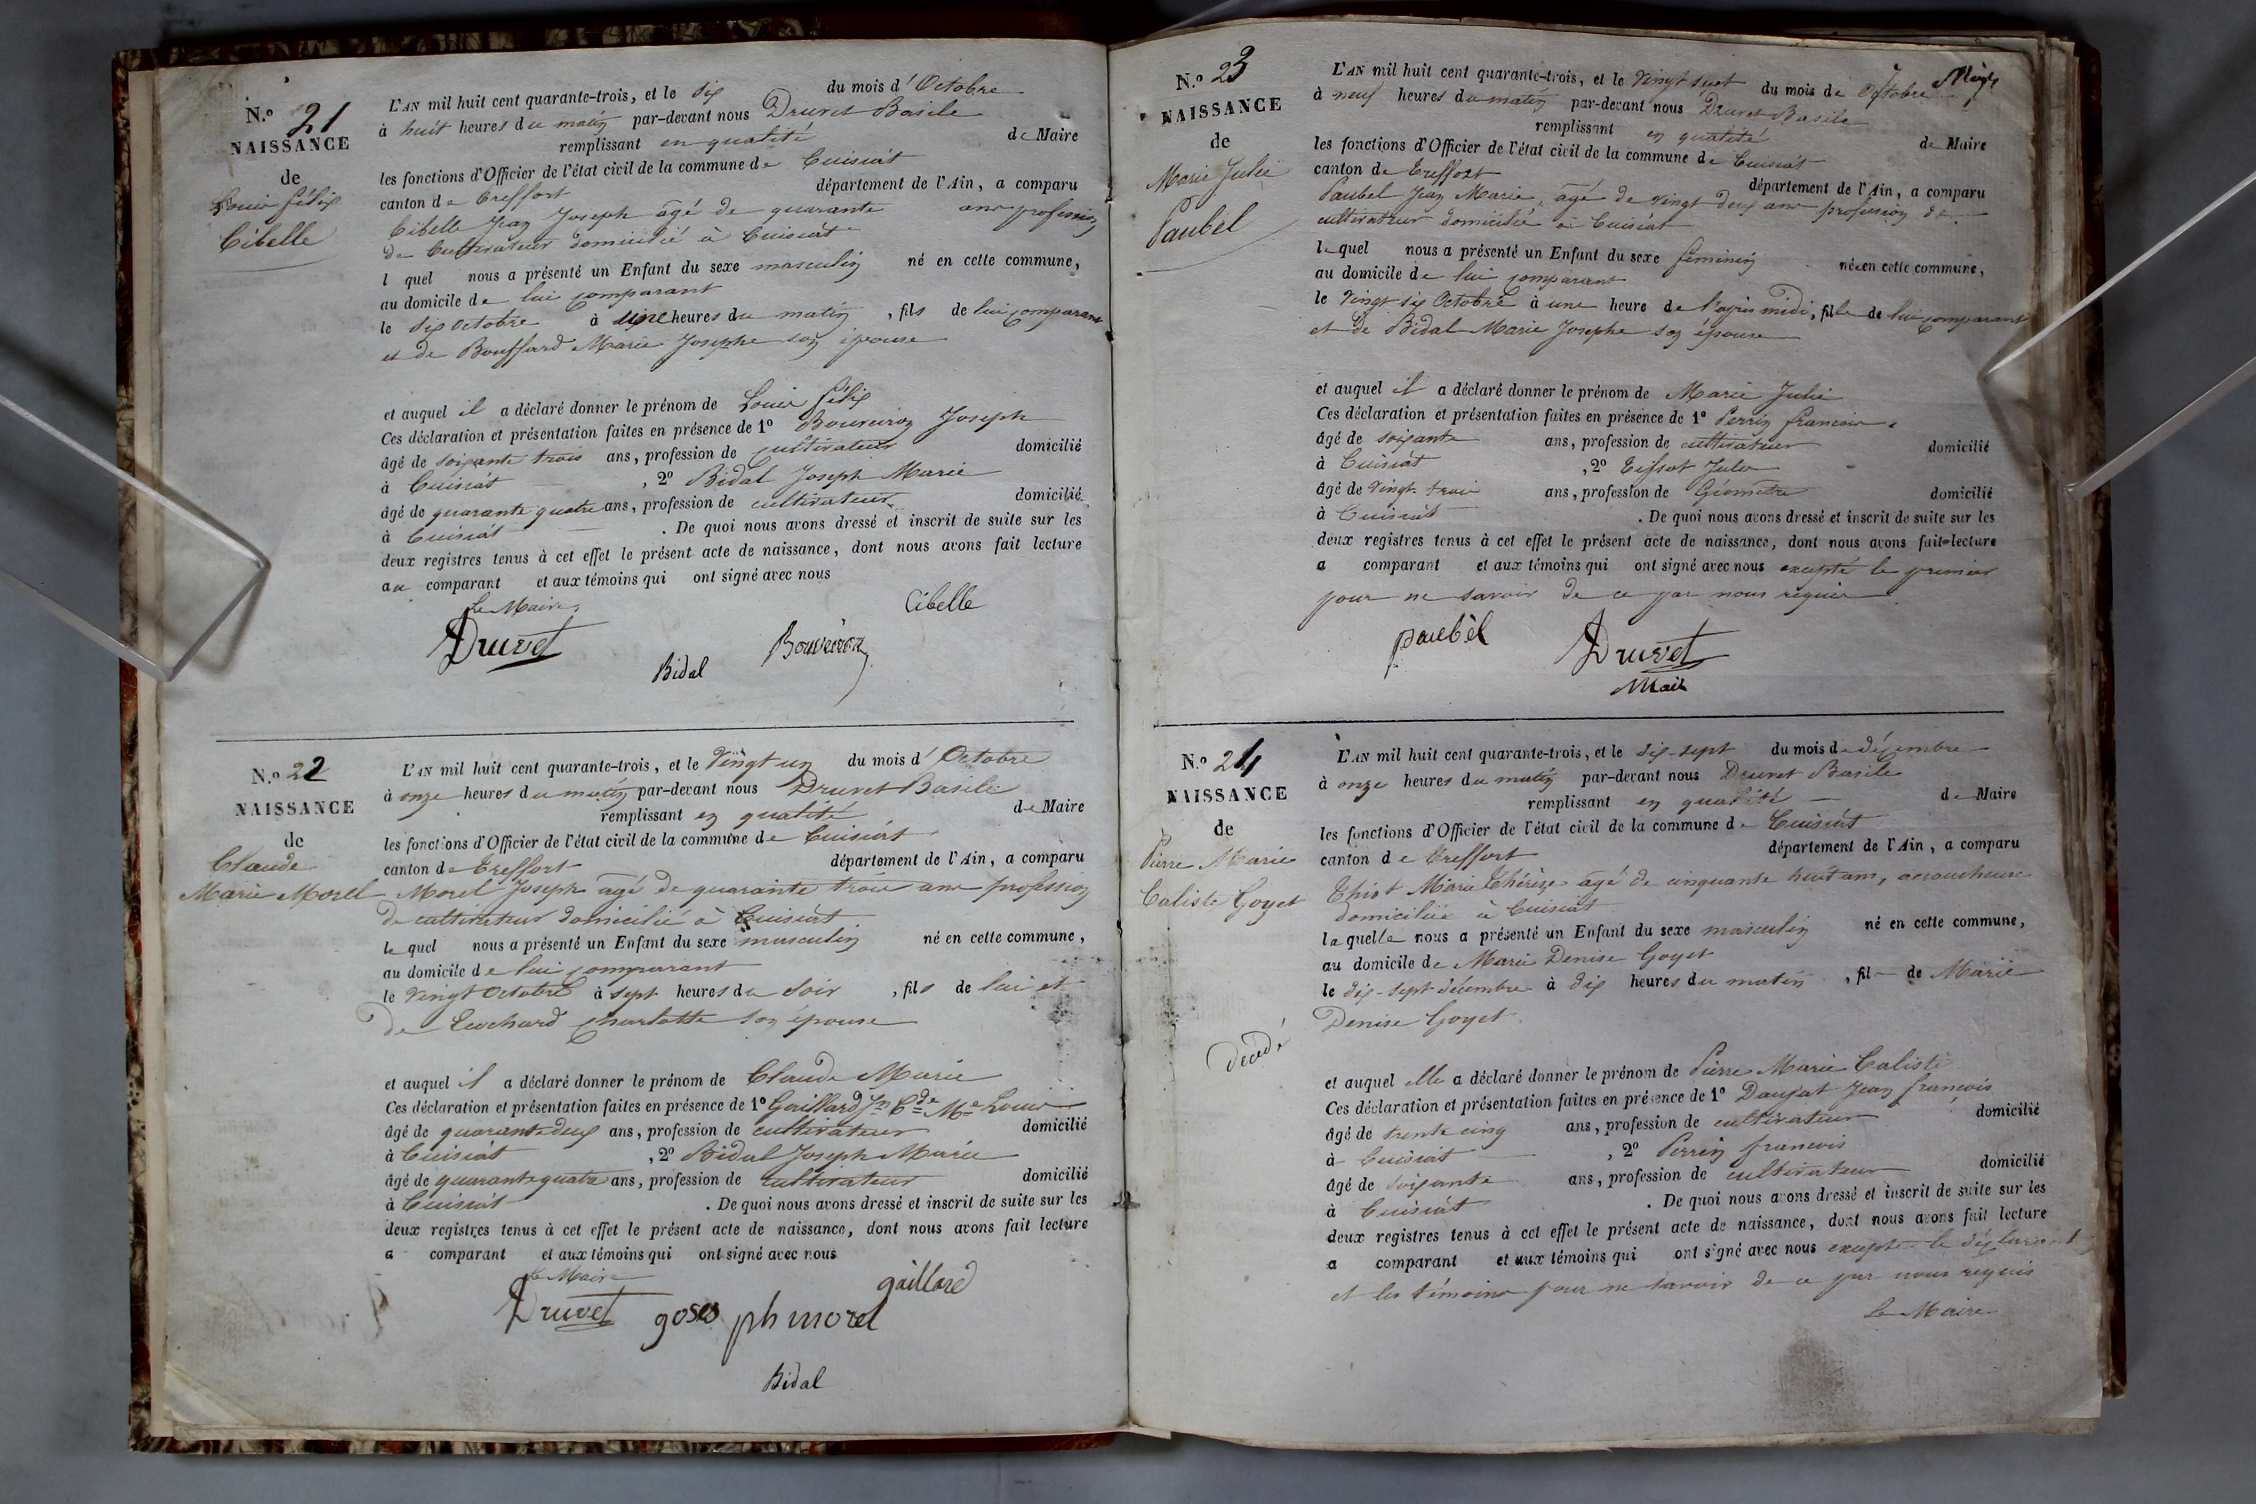 N.o 21
NAISSANCE
de
Louis félix
Cibelle
L'AN mil huit cent quarante-trois, et le dix du mois d'Octobre
à huit heures du matin par-devant nous Druvet Basile
remplissant en qualité de Maire
les fonctions d'Officier de l'état civil de la commune de Cuisiat
canton de Treffort département de l'Ain, a comparu
Cibelle Jean Joseph âgé de quarante ans profession
de Cultivateur domicilié à Cuisiat
l quel nous a présenté un Enfant du sexe masculin né en cette commune,
au domicile de lui comparant
le dix Octobre à une heures du matin, fils de lui comparant
et de Bouffard Marie Josephe son épouse
et auquel il a déclaré donner le prénom de Louis félix
Ces déclaration et présentation faites en présence de 1º Bouveiron Joseph
âgé de soixante trois ans, profession de cultivateur domicilié
à Cuisiat, 2º Bidal Joseph Marie
âgé de quarante quatre ans, profession de cultivateur domicilié
à Cuisiat. De quoi nous avons dressé et inscrit de suite sur les
deux registres tenus à cet effet le présent acte de naissance, dont nous avons fait lecture
au comparant et aux témoins qui ont signé avec nous
Le Maire
Cibelle
Druvet
Bidal
Bouveiron
N.o 22
NAISSANCE
de
Claude
Marie Morel
L'AN mil huit cent quarante-trois, et le Vingt un du mois d'Octobre
à onze heures du matin par-devant nous Druvet Basile
remplissant en qualité de Maire
les fonctions d'Officier de l'état civil de la commune de Cuisiat
canton de Treffort département de l'Ain, a comparu
Morel Joseph âgé de quarante trois ans profession
de cultivateur domicilié à Cuisiat
le quel nous a présenté un Enfant du sexe masculin né en cette commune,
au domicile de lui comparant
le vingt Octobre à sept heures du soir, fils de lui et
de Charlotte son épouse
et auquel il a déclaré donner le prénom de Claude Marie
Ces déclaration et présentation faites en présence de 1º Gaillard Jn Cde Me Louis
âgé de quarante deux ans, profession de cultivateur domicilié
à Cuisiat, 2º Bidal Joseph Marie
âgé de quarante quatre ans, profession de cultivateur domicilié
à Cuisiat. De quoi nous avons dressé et inscrit de suite sur les
deux registres tenus à cet effet le présent acte de naissance, dont nous avons fait lecture
a comparant et aux témoins qui ont signé avec nous
Le Maire
gaillard
Druvet
goseph morel
Bidal
N.o 23
NAISSANCE
de
Marie Julie
Paubel
L'AN mil huit cent quarante-trois, et le vingt sept du mois de Octobre
à neuf heures du matin par-devant nous Druvet Basile
remplissant en qualité de Maire
les fonctions d'Officier de l'état civil de la commune de Cuisiat
canton de Treffort département de l'Ain, a comparu
Paubel Jean Marie, âgé de vingt deux ans profession de
cultivateur domicilié à Cuisiat
le quel nous a présenté un Enfant du sexe féminin née en cette commune,
au domicile de lui comparant
le vingt six Octobre à une heure de l'après midi, fille de lui comparant
et de Bidal Marie Josephe son épouse
et auquel il a déclaré donner le prénom de Marie Julie
Ces déclaration et présentation faites en présence de 1º Perrin francois
âgé de soixante ans, profession de cultivateur domicilié
à Cuisiat, 2º Tissot Jules
âgé de vingt trois ans, profession de Géomètre domicilié
à Cuisiat. De quoi nous avons dressé et inscrit de suite sur les
deux registres tenus à cet effet le présent acte de naissance, dont nous avons fait lecture
a comparant et aux témoins qui ont signé avec nous excepté le premier
pour ne savoir de ce par nous requis
paubel
Druvet
N.o 24
NAISSANCE
de
Pierre Marie
Caliste Goyet
décédé
L'AN mil huit cent quarante-trois, et le dix-sept du mois de décembre
à onze heures du matin par-devant nous Druvet Basile
remplissant en qualité de Maire
les fonctions d'Officier de l'état civil de la commune de Cuisiat
canton de Treffort département de l'Ain, a comparu
Marie Thérèze âgé de cinquante huit ans, accoucheuse
domiciliée à Cuisiat
laquelle nous a présenté un Enfant du sexe masculin né en cette commune,
au domicile de Marie Denise Goyet
le dix-sept décembre à dix heures du matin, fil de Marie
Denise Goyet
et auquel elle a déclaré donner le prénom de Pierre Marie Caliste
Ces déclaration et présentation faites en présence de 1º Daujat Jean francois
âgé de trente cinq ans, profession de cultivateur domicilié
à Cuisiat, 2º Perrin francois
âgé de soixante ans, profession de cultivateur domicilié
à Cuisiat. De quoi nous avons dressé et inscrit de suite sur les
deux registres tenus à cet effet le présent acte de naissance, dont nous avons fait lecture
a comparant et aux témoins qui ont signé avec nous excepté le déclarant
et les témoins pour ne savoir de ce par nous requis
Le Maire